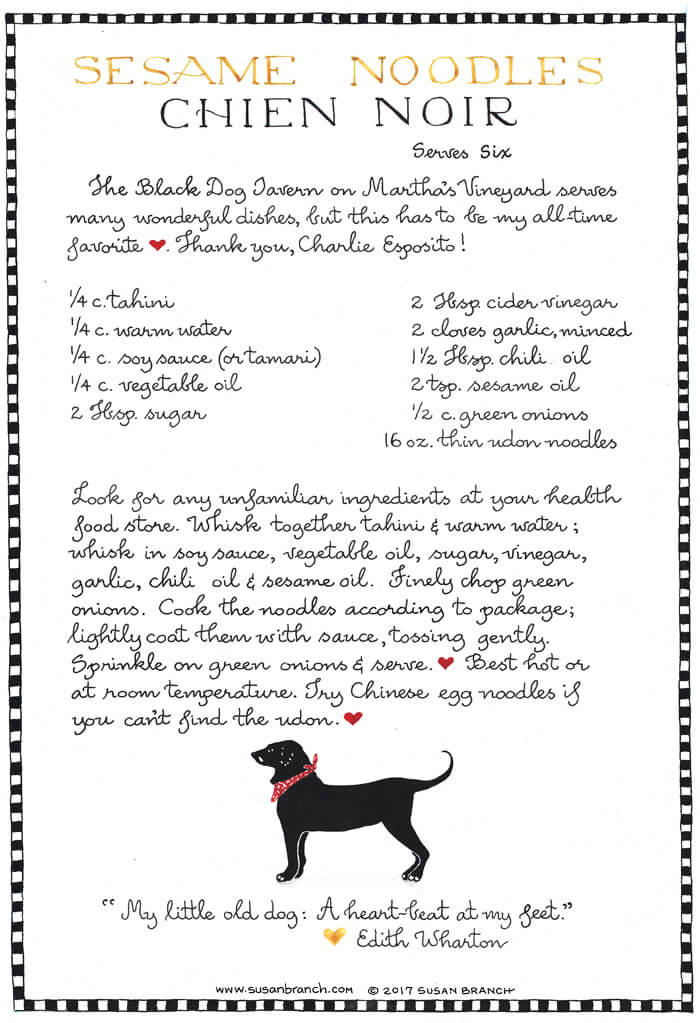 SESAME NOODLES
CHIEN NOIR
Serves Six
The Black Dog Tavern on Martha's Vineyard serves
many wonderful dishes, but this has to be my all-time
favorite ❤. Thank you, Charlie Esposito!
1/4 c. tahini
1/4 c. warm water
1/4 c. soy sauce (or tamari)
1/4 c. vegetable oil
2 Tbsp. sugar
2 Tbsp. cider vinegar
2 cloves garlic, minced
1 1/2 Tbsp. chili oil
2 tsp. sesame oil
1/2 c. green onions
16 oz. thin udon noodles
Look for any unfamiliar ingredients at your health
food store. Whisk together tahini & warm water;
whisk in soy sauce, vegetable oil, sugar, vinegar,
garlic, chili oil & sesame oil. Finely chop green
onions. Cook the noodles according to package;
lightly coat them with sauce, tossing gently.
Sprinkle on green onions & serve. ❤ Best hot or
at room temperature. Try Chinese egg noodles if
you can't find the udon. ❤
"My little old dog: A heart-beat at my feet."
💛 Edith Wharton
www.susanbranch.com © 2017 SUSAN BRANCH